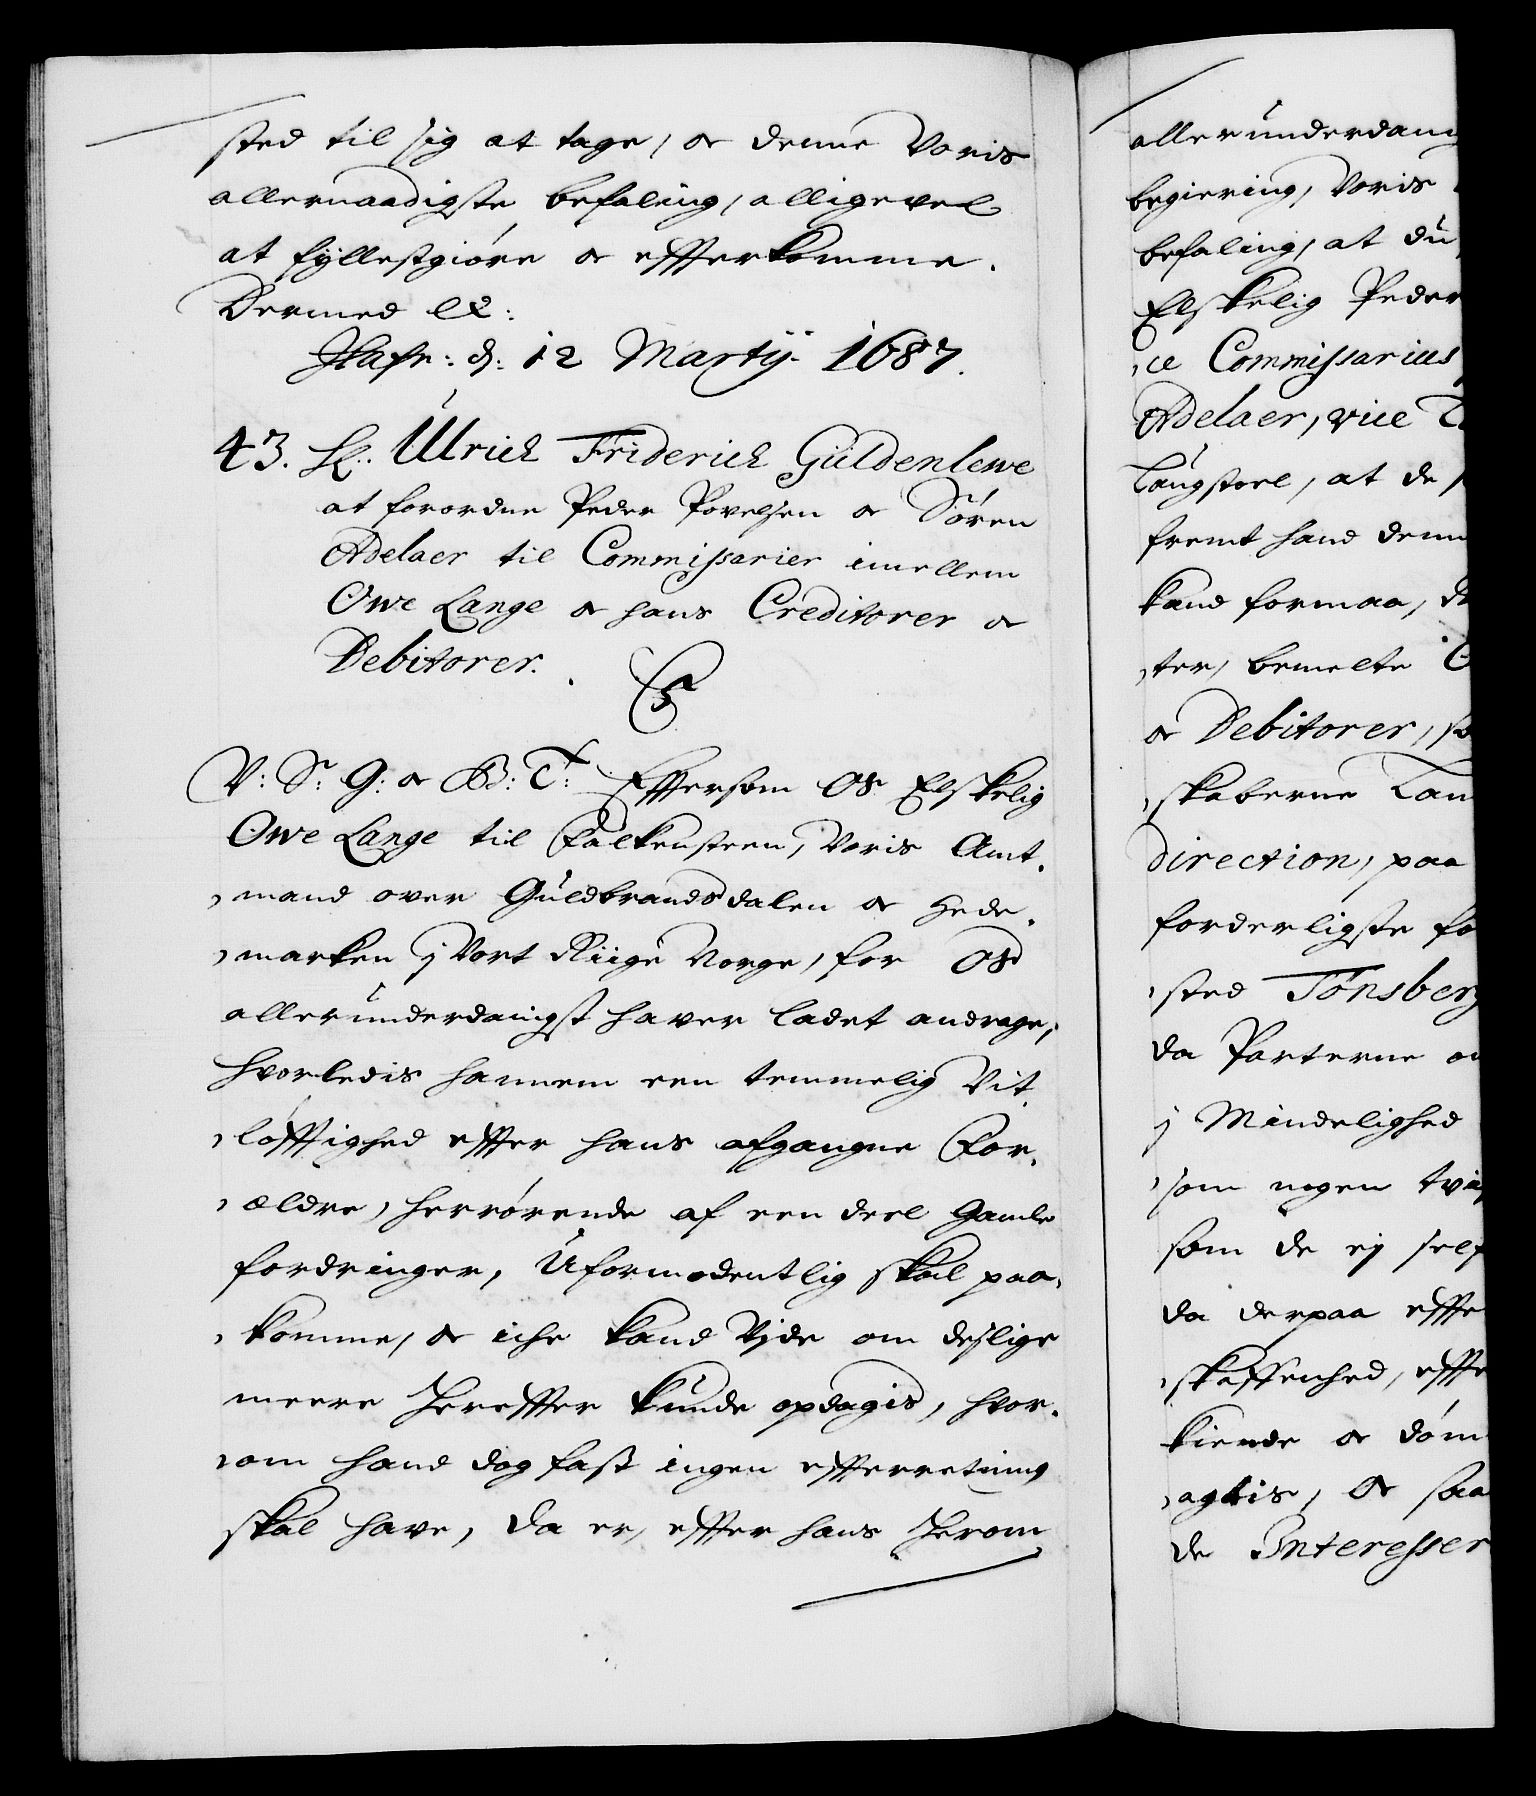 sted til sig at tage, oc denne Voris
allernaadigste befaling, alligevel
at fyllestgiøre oc effterkomme.
Dermed etc:
Hafn: d: 12 Martij. 1687.
43. Hr: Ulrich Friderich Güldenlewe
at forordne Peder Povelsen oc Sören
Adelaer til Commissarier imellem
Owe Lange oc hans Creditorer oc
Debitorer.
C5
V: Sr G: oc B: T: Efftersom Os Elskelig
Owe Lange til Falkensteen, Voris Amt,
,mand over Guldbrandsdalen oc Hede,
,marken j Vort Riige Norge, for Os
allerunderdanigst haver ladet andrage,
hvorledis hannem een temmelig Vit,
,løfftighed effter hans afgangne For,
,ældre, herrørende af een deel Gamle
fordringer, Uformodentlig skal paa,
,komme, oc iche kand Vide om deslige
meere hereffter kunde opdagis, hvor,
,om hand dog fast ingen effterretning
skal have, da er, effter hans herom
allerunderdanig
begiering, Voris
befaling, at du
Elskelig Peder
,ce Commissarius
Adelaer, vice
Laugstoel, at de
fremt hand denne
kand formaa,
,ter, bemelte
oc Debitorer,
,skaberne
direction, paa
forderligste
,sted Tønsberg
da Parterne
j Mindelighed
,som nogen
som de ej self
da derpaa
,skaffenhed,
kiende oc døm
,agtis, oc saa
de Interesser